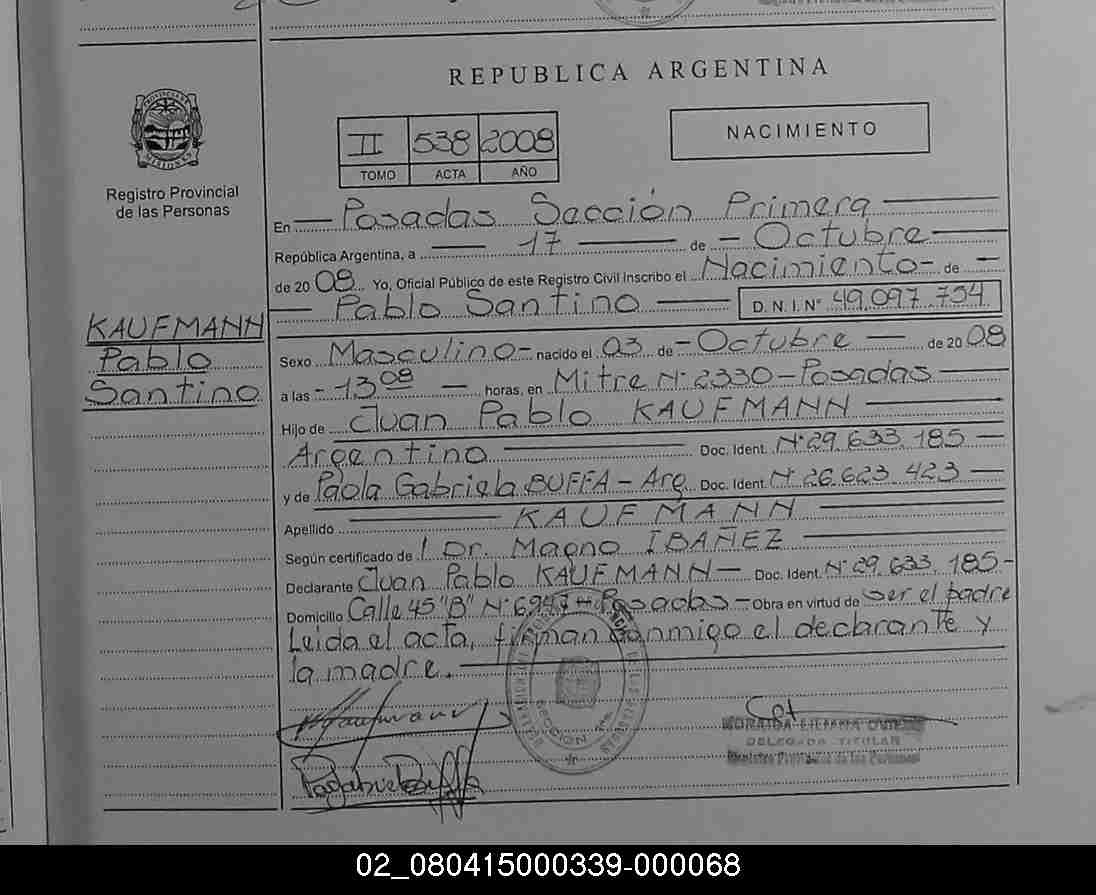 REPUBLICA ARGENTINA
PROVINCIA DE
MISIONES
Registro Provincial
de las Personas
II 538 2008
TOMO ACTA AÑO
NACIMIENTO
En Posadas Sección Primera
República Argentina, a 17 de Octubre
de 2008 Yo, Oficial Público de este Registro Civil inscribo el Nacimiento de
Pablo Santino D. N. I. N° 49.097.754
KAUFMANN
Pablo
Santino
Sexo Masculino nacido el 03 de Octubre de 2008
a las 13 08 horas, en Mitre N° 2330 - Posadas
Hijo de Juan Pablo KAUFMANN
Argentino Doc. Ident. N° 29.633.185
y de Paola Gabriela BUFFA - Arg Doc. Ident. N° 26.623.423
Apellido KAUFMANN
Según certificado de Dr. Magno IBAÑEZ
Declarante Juan Pablo KAUFMANN Doc. Ident. N° 29.633.185
Domicilio Calle 45 "B" N° 6947 - Posadas - Obra en virtud de ser el padre
Leida el acta, firman conmigo el declarante y
la madre.
SECCION
DELEGADA TITULAR
Registro Provincial de las Personas
02_080415000339-000068